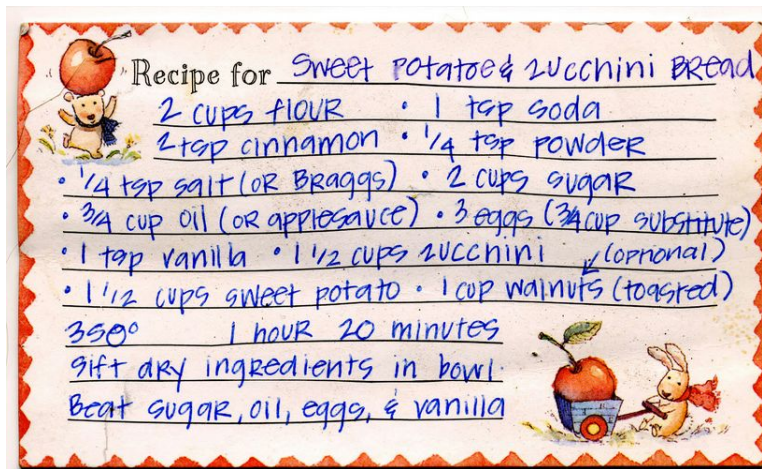 Recipe for Sweet Potatoe & Zucchini Bread
2 cups flour · 1 tsp soda
2 tsp cinnamon · 1/4 tsp powder
· 1/4 tsp salt (or Braggs) · 2 cups sugar
· 3/4 cup oil (or applesauce) · 3 eggs (3/4 cup substitute)
· 1 tsp vanilla · 1 1/2 cups zucchini (optional)
· 1 1/2 cups sweet potato · 1 cup walnuts (toasted)
350° 1 hour 20 minutes
Sift dry ingredients in bowl.
Beat sugar, oil, eggs, & vanilla